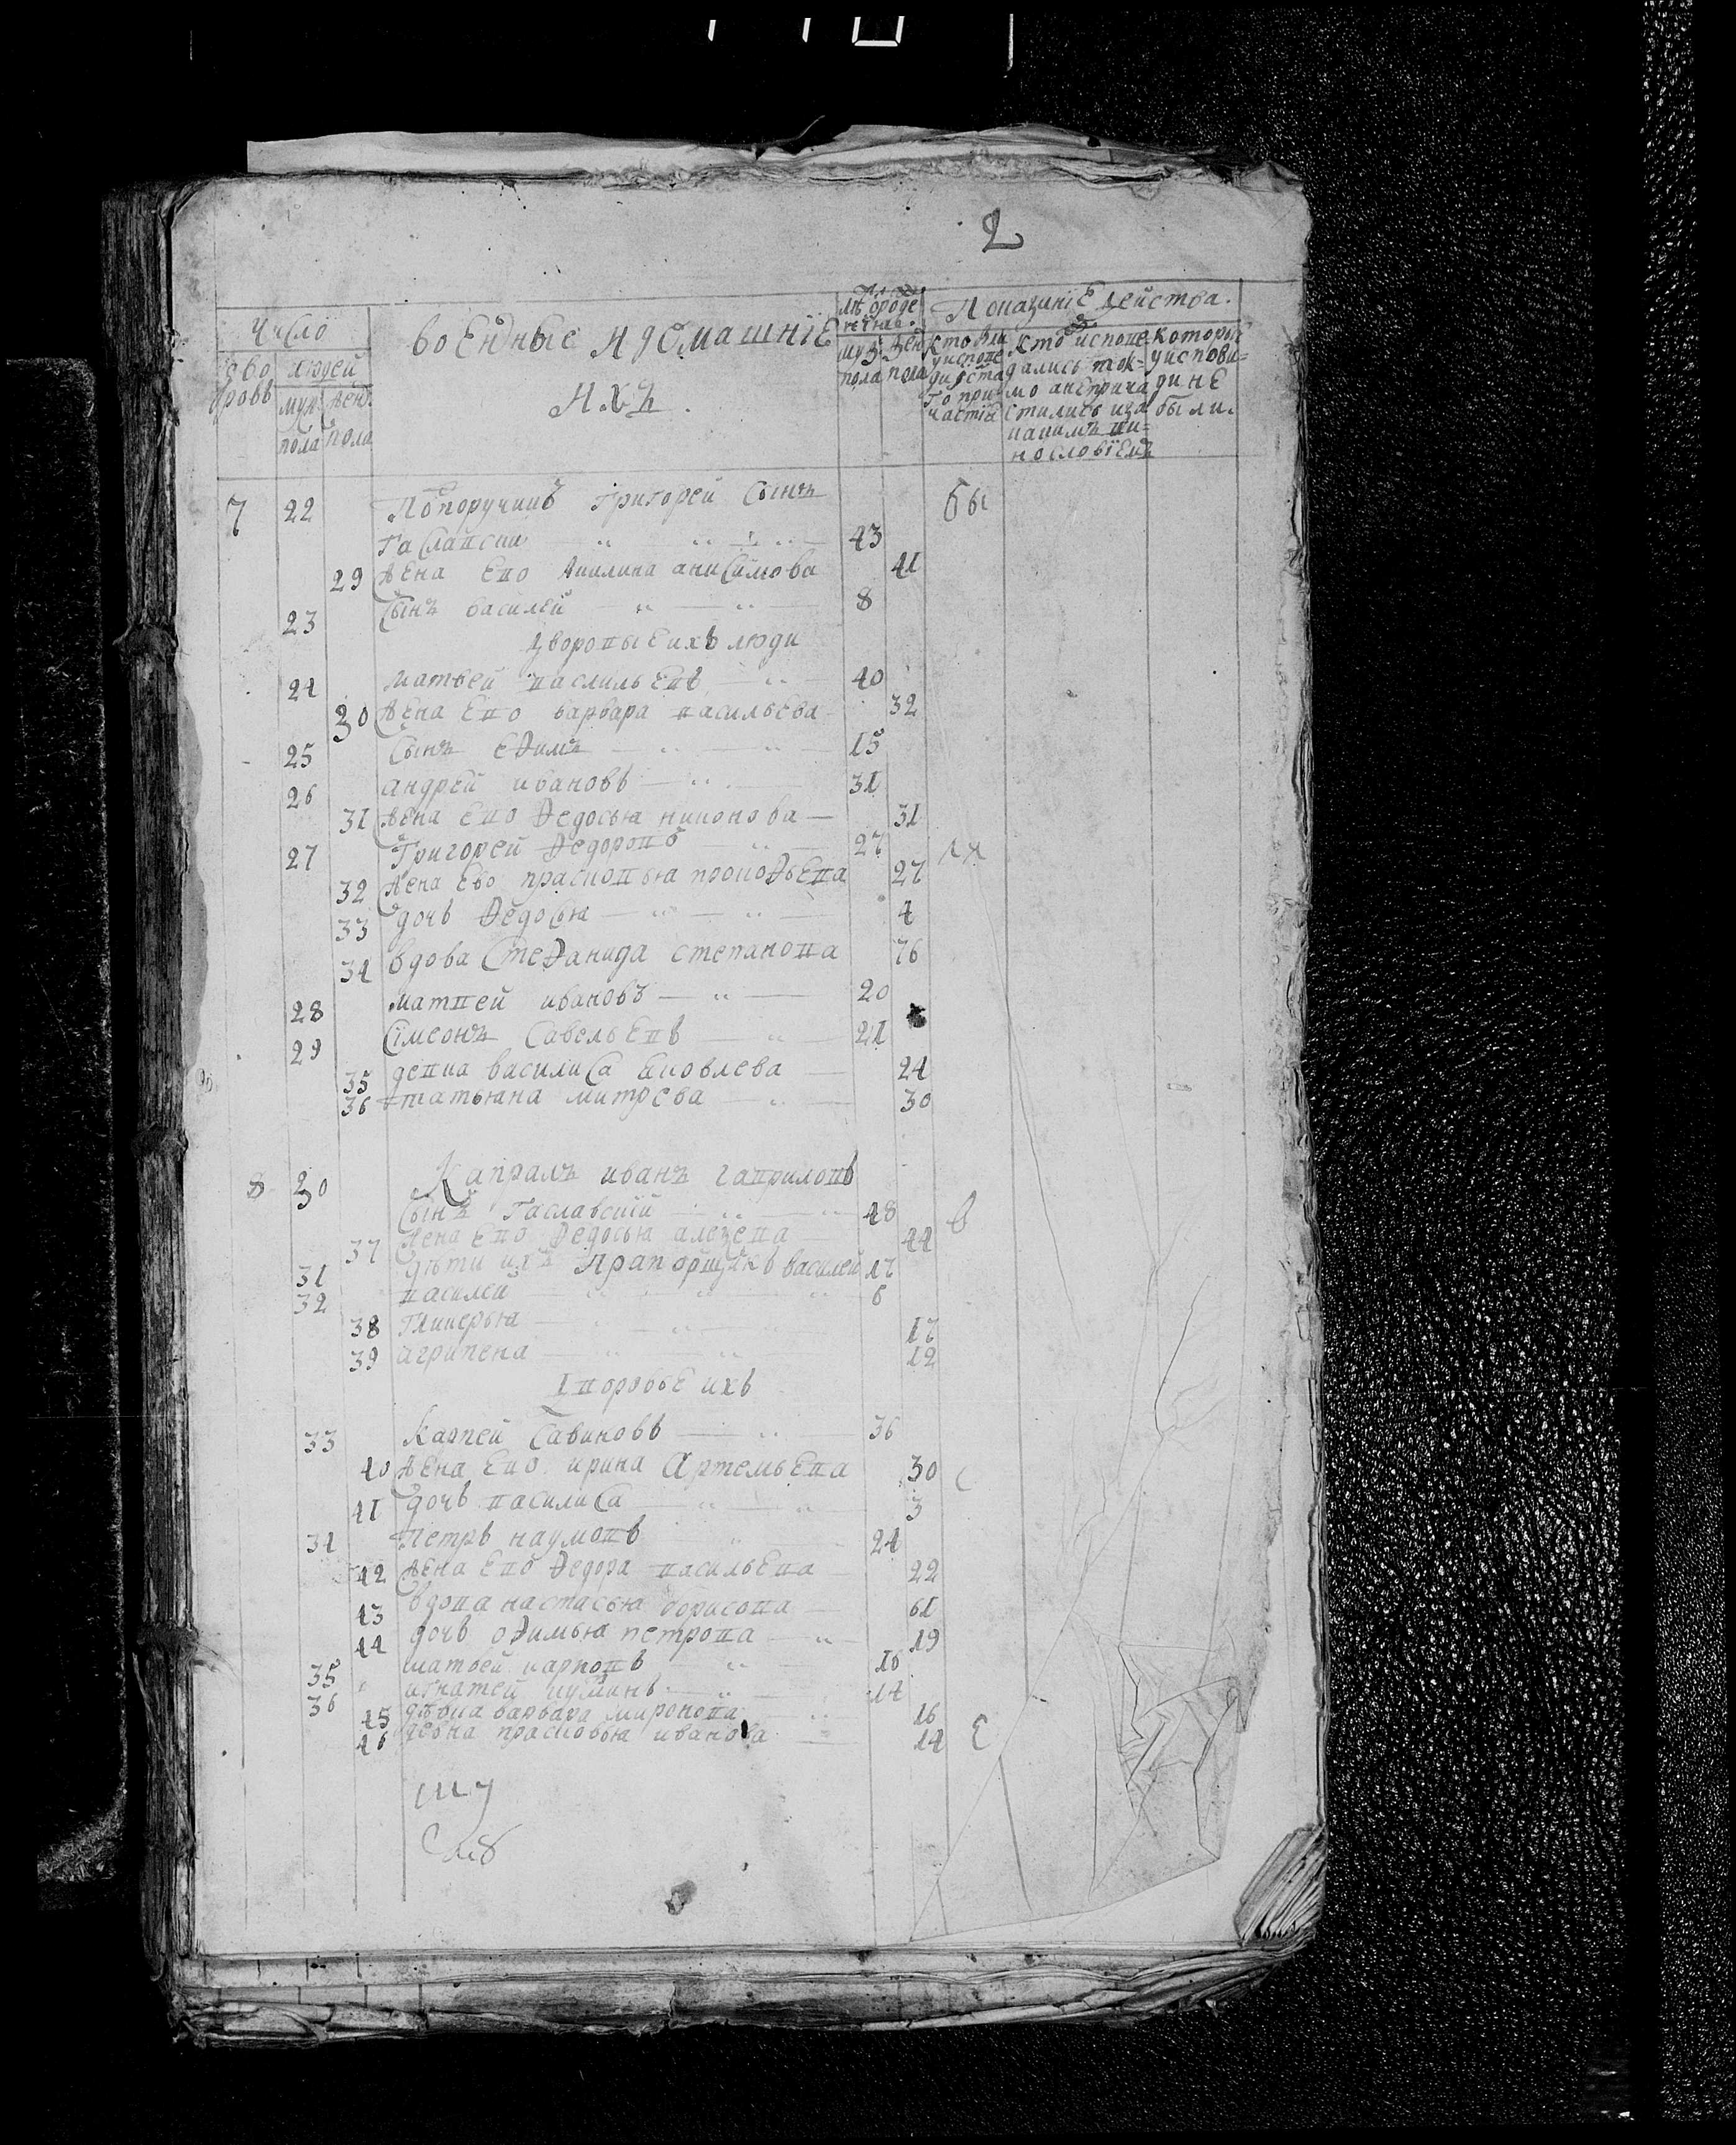 2
Число
военные и домашніе
ихъ.
лѣ
Показаніе действа.
людей
муж. жен.
пола пола
муж. жен.
пола пола
которые
у испове=
ди не
были.
7 22 Подпоручикъ Григорей сынъ бы
Гаславски 43
29 жена ево Акилина анисимова 41
23 сынъ василей 8
дворовые ихъ люди
24 матвей васильевъ 40
30 жена ево варвара васильева 32
25 сынъ ефимъ 15
26 андрей ивановъ 31
31 жена ево федосья никонова 31
27 Григорей федоровъ 27 ли
32 жена ево прасковья прокофьева 27
33 дочь федосья 4
34 вдова стефанида степанова 76
28 матвей ивановъ 20
29 симеонъ савельевъ 21
35 девка василиса яковлева 24
36 татьяна митрева 30
8 30 Капралъ иванъ гавриловъ
сынъ Гаславскій 48 в
37 жена ево федосья 44
31 дѣти ихъ Прапорщикъ василей 17
32 василей 6
38 Гликерья 17
39 агрипена 12
дворовые ихъ
33 Карпей савиновъ 36
40 жена ево ирина Артемьева 30 с
41 дочь василиса 3
34 Петръ наумовъ 24
42 жена ево федора васильева 22
43 вдова настасья борисова 61
44 дочь офимья петрова 19
35 матвей карповъ 16
36 игнатей 14
45 дѣвка варвара миронова 16
46 девка прасковья иванова 14 е